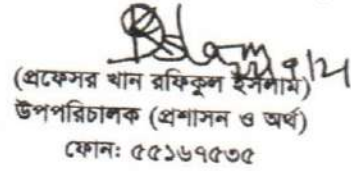 (প্রফেসর খান রফিকুল ইসলাম)
উপপরিচালক (প্রশাসন ও অর্থ)
ফোন: ৫৫১৬৭৫৩৫